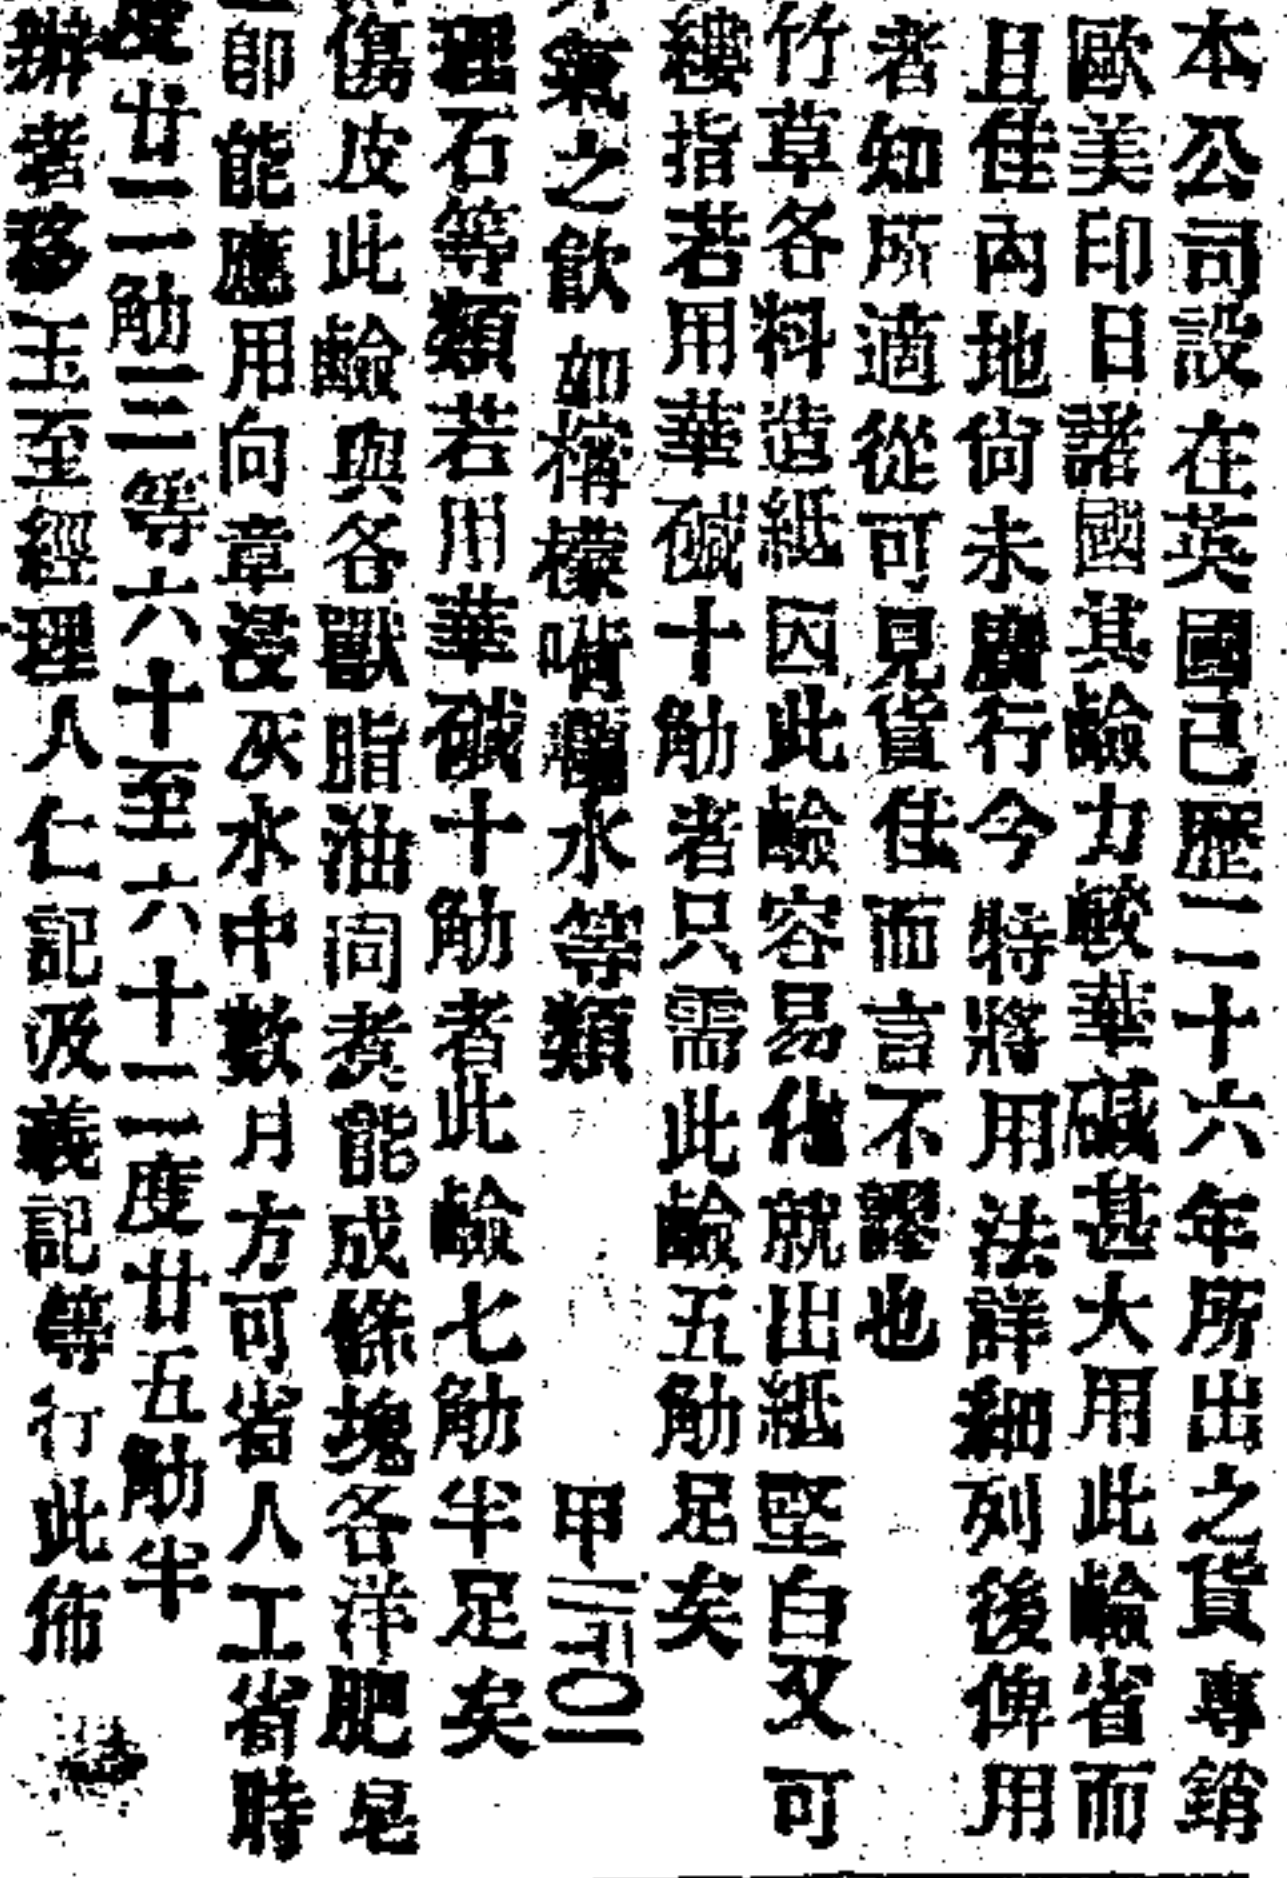 本公司設在英國已歷二十六年所出之貨專銷
歐美印日諸國其鹼力較華碱甚大用此鹼省而
且佳內地尙未廣行今特將用法詳細列後俾用
者知所適從可見貨佳而言不謬也
竹草各料造紙因此鹼容易化就出紙堅白又可
縷指若用華碱十觔者只需此鹼五觔足矣
氣之飮如檸檬嗬囒水等類 甲 〇一
理石等類若用華碱十觔者此鹼七觔半足矣
傷皮此鹼與各獸脂油同煑能成條塊各洋肥皂
卽能應用向章浸灰水中數月方可省人工省時
度廿二觔三等六十至六十二度廿五觔半
辦者移玉至經理人仁記汲義記等行此佈